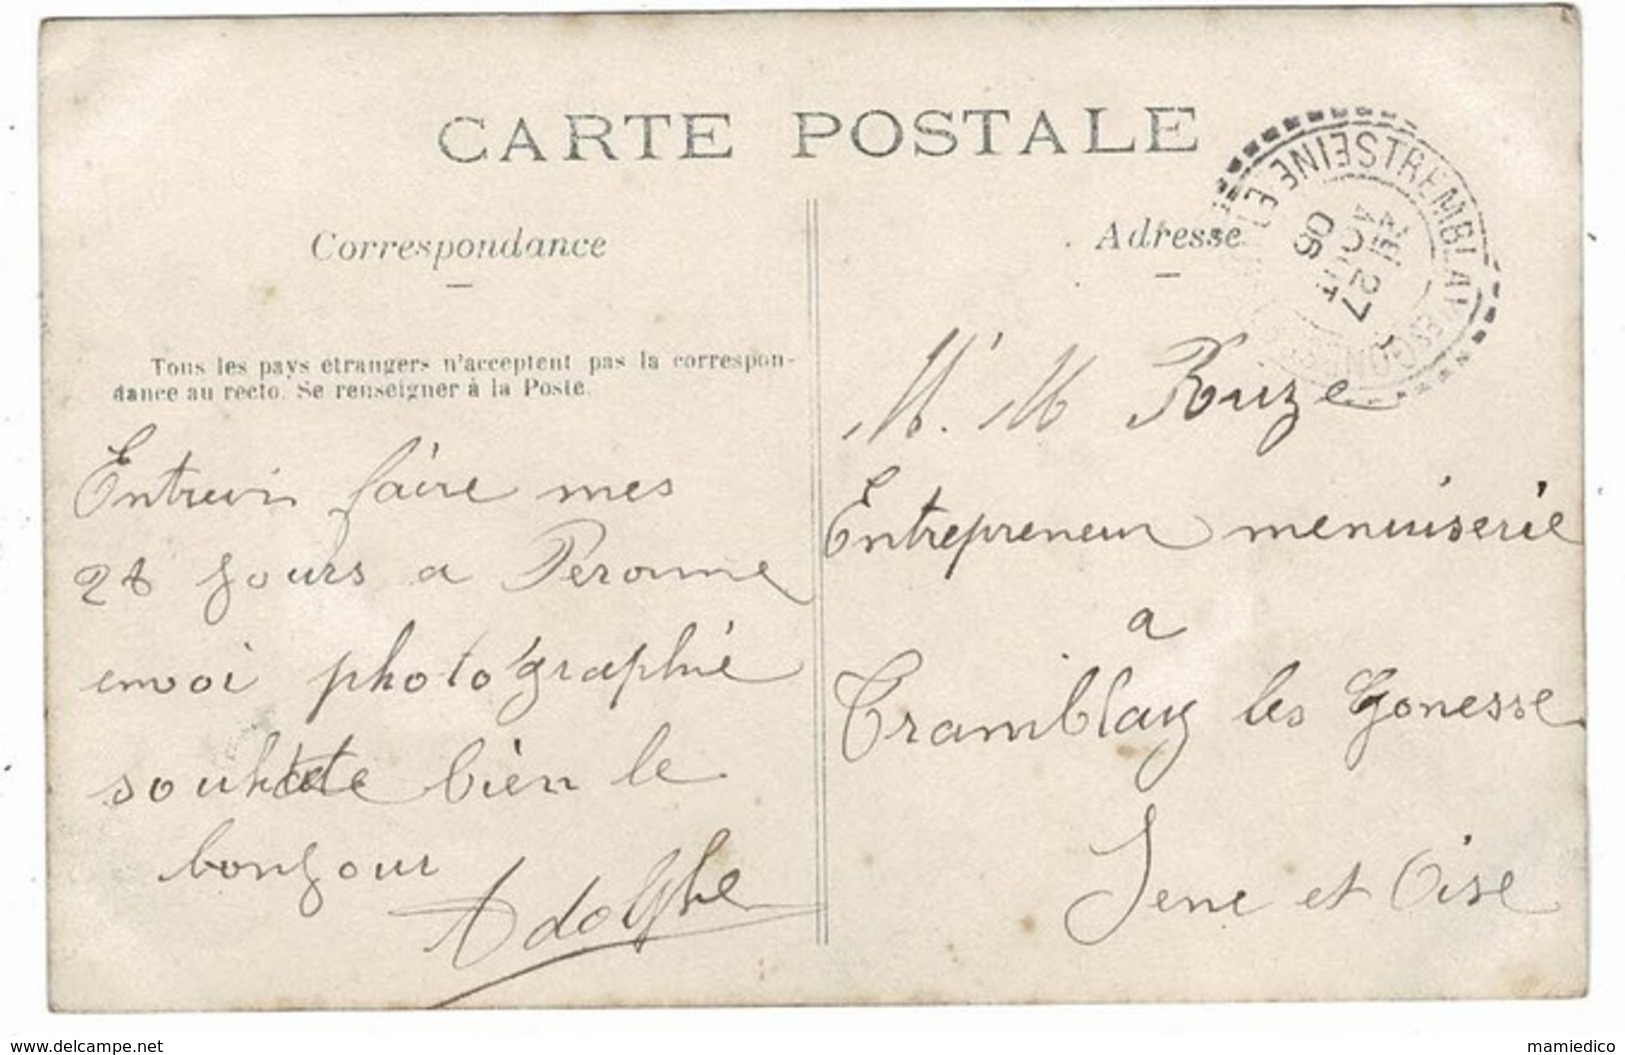 CARTE POSTALE
Correspondance
Tous les pays étrangers n'acceptent pas la correspon-
dance au recto. Se renseigner à la Poste.
Entrevin faire mes
28 jours a Peronne
envoi photographie
souhete bien le
bonjour
Adolphe
Adresse
TREMBLAY
SEINE ET
27
AOUT
06
M. M Ruze
Entrepreneur menuiserie
a
Tramblay les Gonesse
Sene et Oise
www.delcampe.net
mamiedico